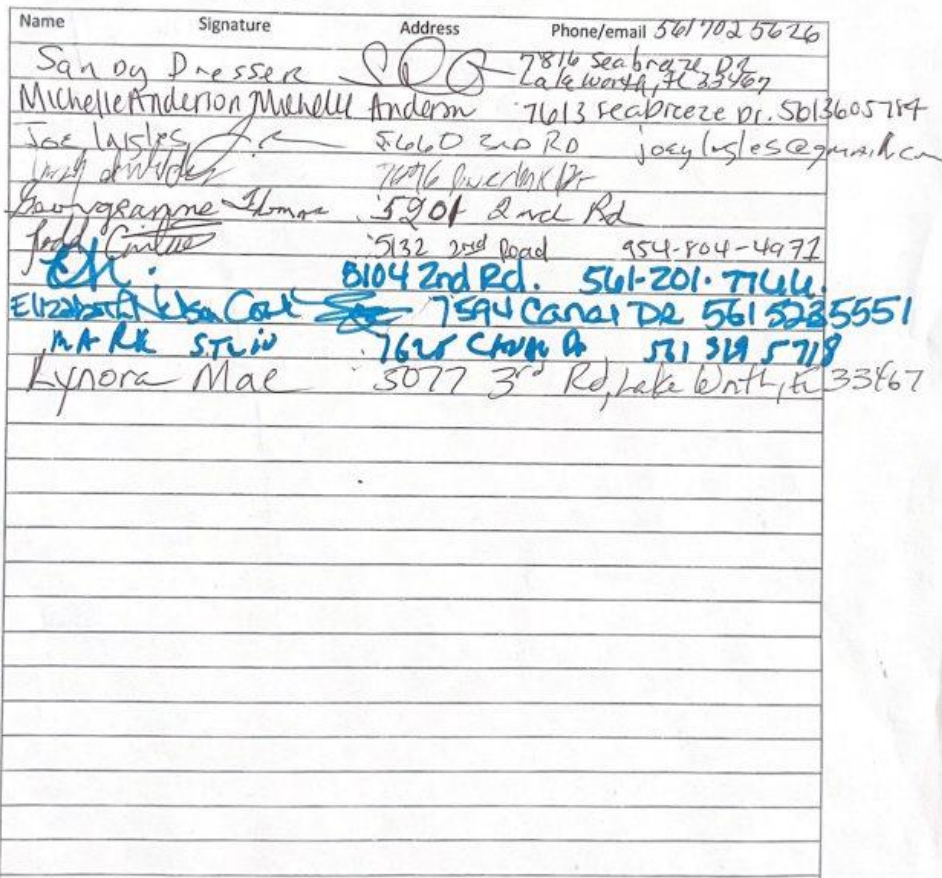 Name Signature Address Phone/email 561 702 5626
Sandy Dresser 7816 Seabreeze Dr
Lake Worth, FL 33467
Michelle Anderson Michelle Anderson 7613 Seabreeze Dr. 5613605784
Joe Ingles 5660 2nd RD
Georgeanne Thomas 5201 2nd Rd
Todd 5132 2nd Road 954-804-4971
8104 2nd Rd. 561-201-7766
Elizabeth Nelson 7594 Canal DR 561 523 5551
MARK 561 319 5718
Lynora Mae 5077 3rd Rd, Lake Worth, FL 33467